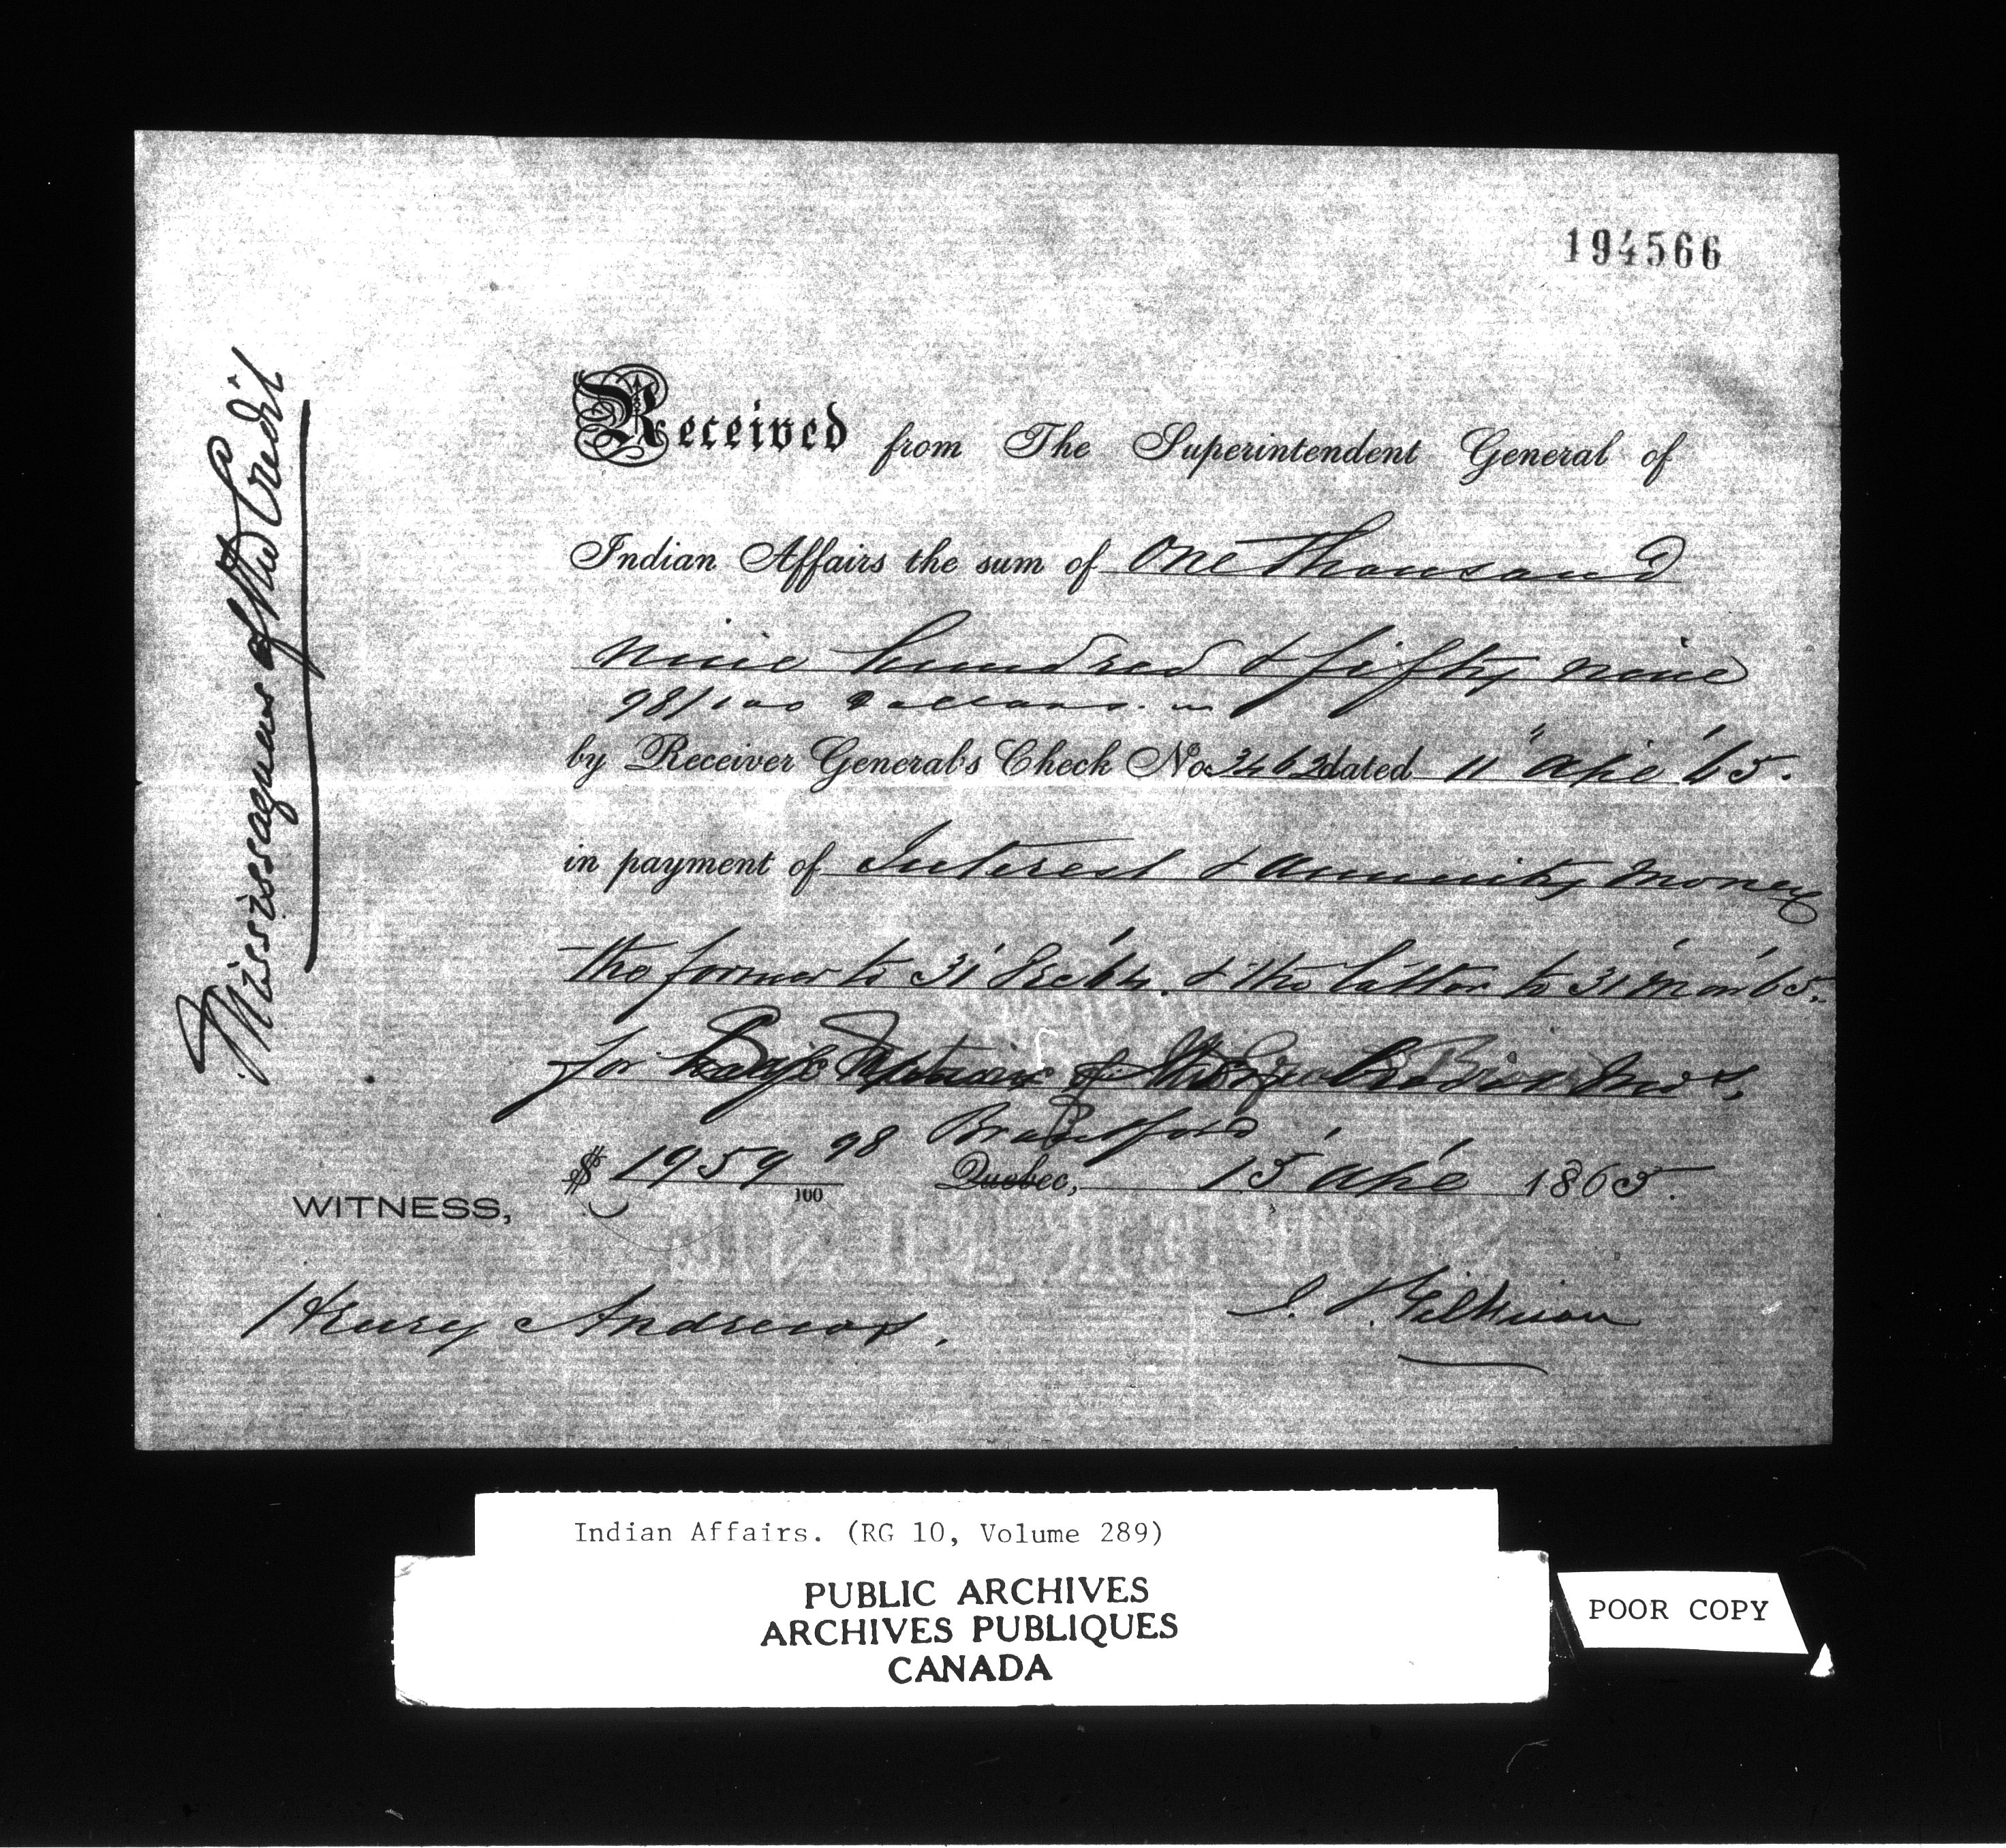 194566
Mississaguas of the Credit
Received from The Superintendent General of
Indian Affairs the sum of One Thousand
nine hundred & fifty nine
98/100 Dollars
by Receiver General's Check No 3462 dated 11" Apl '65.
in payment of Interest & Annuity Money
the former to 31' Dec '64. & the latter to 31' Mar '65.
for of the Credit
Brantford
$ 1959 98/100 Quebec, 15' Apl 1865.
WITNESS,
Henry Andrews.
J. T. Gilkison
Indian Affairs. (RG 10, Volume 289)
PUBLIC ARCHIVES
ARCHIVES PUBLIQUES
CANADA
POOR COPY